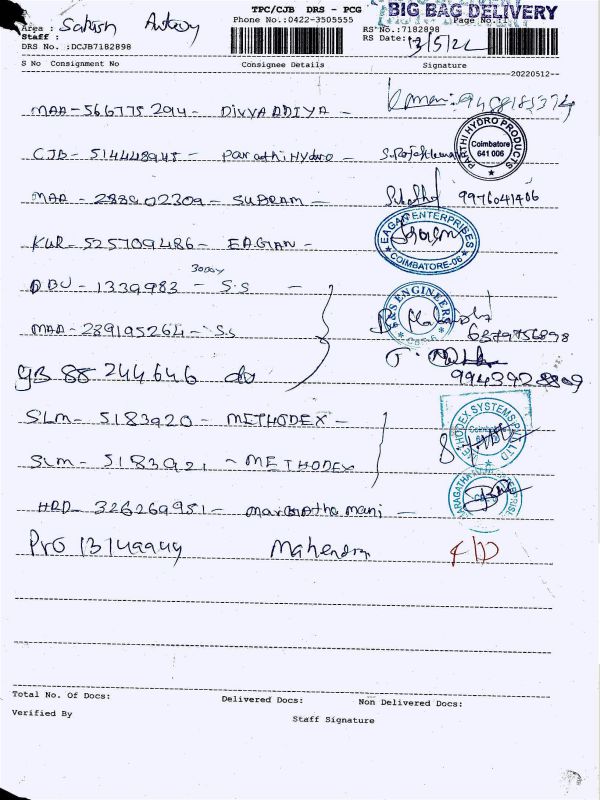 TPC/CJB DRS - PCG BIG BAG DELIVERY
Area : Satish Antony Phone No.:0422-3505555 Page No.:1
Staff : RS No.:7182898
DRS No. :DCJB7182898 RS Date: 13/5/22
S No Consignment No Consignee Details Signature
20220512
MAA-566775294- DIVYA DDIYA -
CJB- 514448945- Parathi Hydro - PARTHI HYDRO PRODUCTS Coimbatore 641 006
MAA - 288402309- SUBRAM- 9976041406
KUR- 525709486- EAGIAN- EAGAN ENTERPRISES COIMBATORE-06
DDU- 1339983 - S.S -
MAA- 289195264- S.S
JB 88 244646 do 9943928809
SLM- 5183920- METHODEX-
SLM- 5183921 - METHODEX
HRD- 326269951-
Pro 13149949 Mahendra
Total No. Of Docs: Delivered Docs: Non Delivered Docs:
Verified By Staff Signature